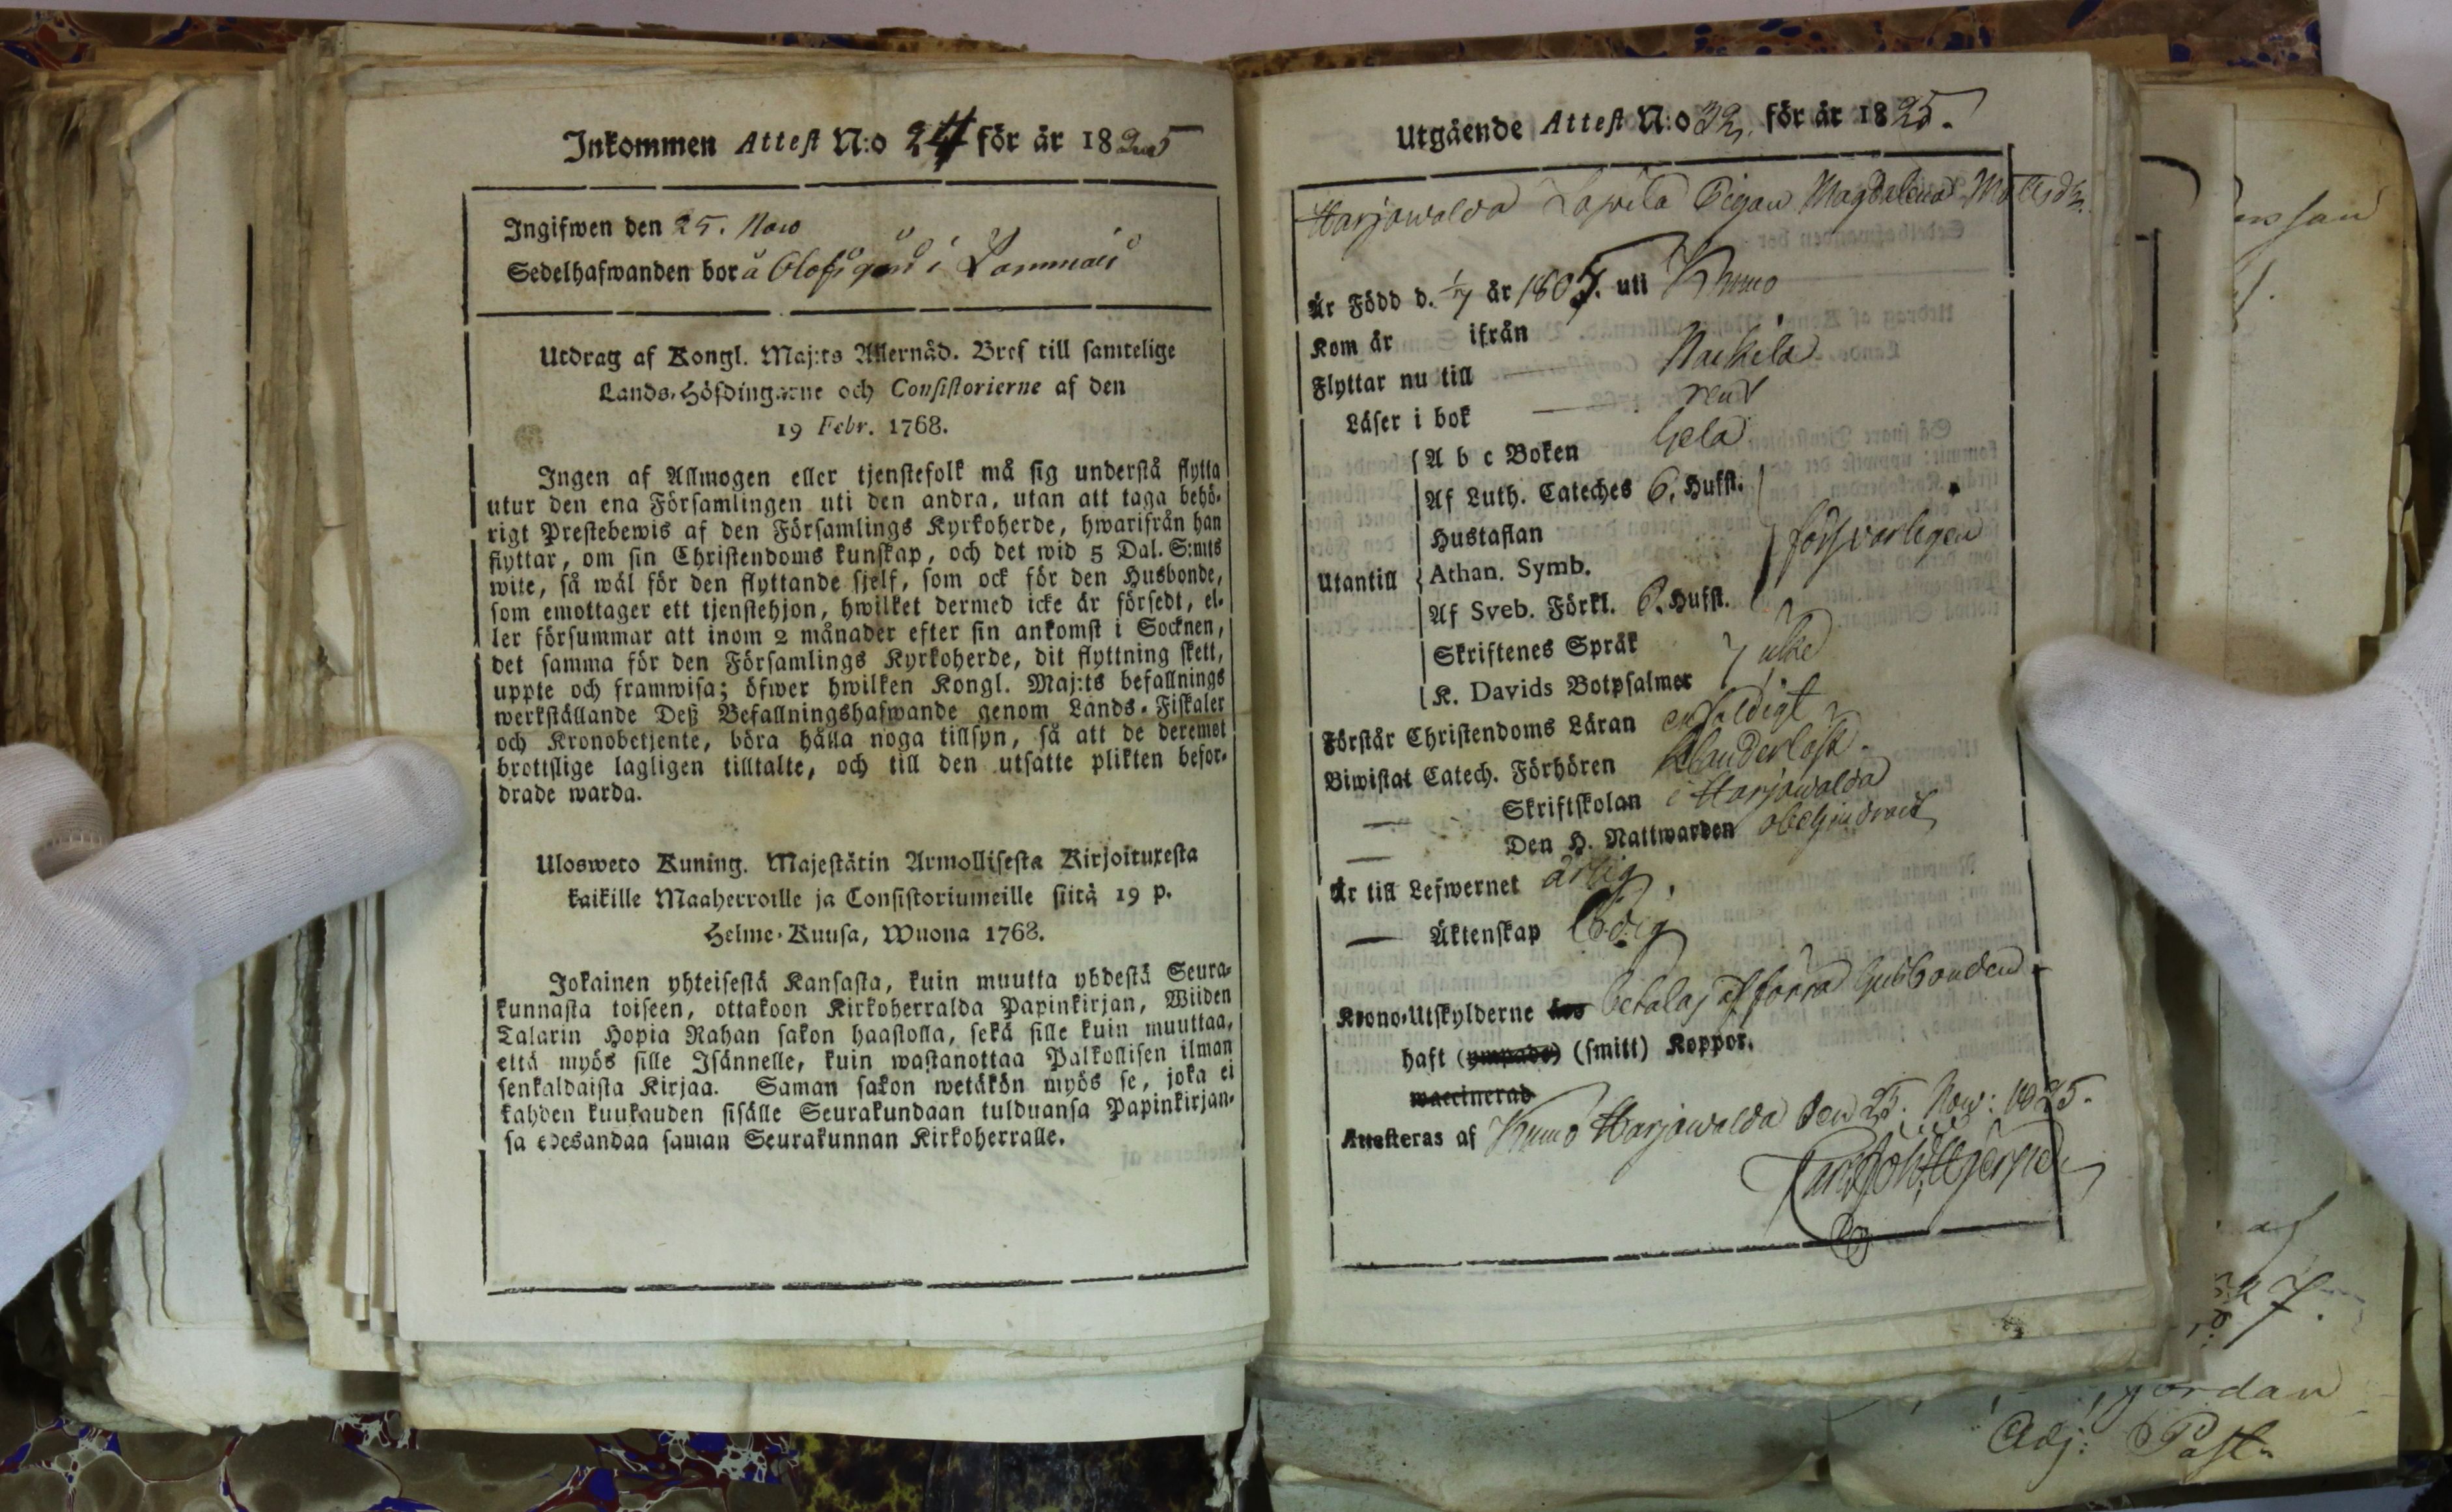 Inkommen Attest N:o 24 för år 1825
Ingifwen den 25. Now
Sedelhafwanden bor å Olofsgård i Lammais
Utdrag af Kongl. Maj:ts Allernåd. Bref till samtelige
Lands-Höfdingarne och Consistorierne af den
19 Febr. 1768.
Ingen af Allmogen eller tjenstefolk må sig understå flytta
utur den ena Församlingen uti den andra, utan att taga behö-
rigt Prestebewis af den Församlings Kyrkoherde, hwarifrån han
flyttar, om sin Christendoms kunskap, och det wid 5 Dal. S:mts
wite, så wäl för den flyttande sjelf, som ock för den Husbonde,
som emottager ett tjenstehjon, hwilket dermed icke är försedt, el-
ler försummar att inom 2 månader efter sin ankomst i Socknen,
det samma för den Församlings Kyrkoherde, dit flyttning skett,
uppte och framwisa; öfwer hwilken Kongl. Maj:ts befallnings
werkställande Deß Befallningshafwande genom Lands-Fiskaler
och Kronobetjente, böra hålla noga tillsyn, så att de deremot
brottslige lagligen tilltalte, och till den utsatte plikten befor-
drade warda.
Ulosweto Kuning. Majestätin Armollisesta Kirjoituxesta
kaikille Maaherroille ja Consistoriumeille siitä 19 p.
Helme-Kuusa, Wuona 1768.
Jokainen yhteisestä Kansasta, kuin muutta yhdestä Seura-
kunnasta toiseen, ottakoon Kirkoherralda Papinkirjan, Wiiden
Talarin Hopia Rahan sakon haastolla, sekä sille kuin muuttaa,
että myös sille Isännelle, kuin wastanottaa Palkollisen ilman
senkaldaista Kirjaa. Saman sakon wetäkön myös se, joka ei
kahden kuukauden sisälle Seurakundaan tulduansa Papinkirjan-
sa edesandaa saman Seurakunnan Kirkoherralle.
Utgående Attest N:o 32 för år 1825.
Harjawalda Lapila Pigan Magdalena Mattsdr.
Är Född d. 1/7 år 1805. uti Kumo
Kom år ifrån
Flyttar nu till Nackila
Läser i bok rent
Utantill
A b c Boken hela
Af Luth. Cateches 6. Hufst.
Hustaflan
Athan. Symb. försvarligen
Af Sveb. Förkl. 6. Hufst.
Skriftenes Språk
K. Davids Botpsalmer icke
Förstår Christendoms Läran enfaldigt
Biwistat Catech. Förhören klanderlöst.
— Skriftskolan i Harjawalda
— Den H. Nattwarden obehindrad
Är till Lefwernet ärlig.
— Äktenskap ledig
Krono-Utskylderne betalas af förra husbonden
haft (ympade) (smitt) Koppor.
waccinerad
Attesteras af Kumo Harjawalda den 25. Now: 1825.